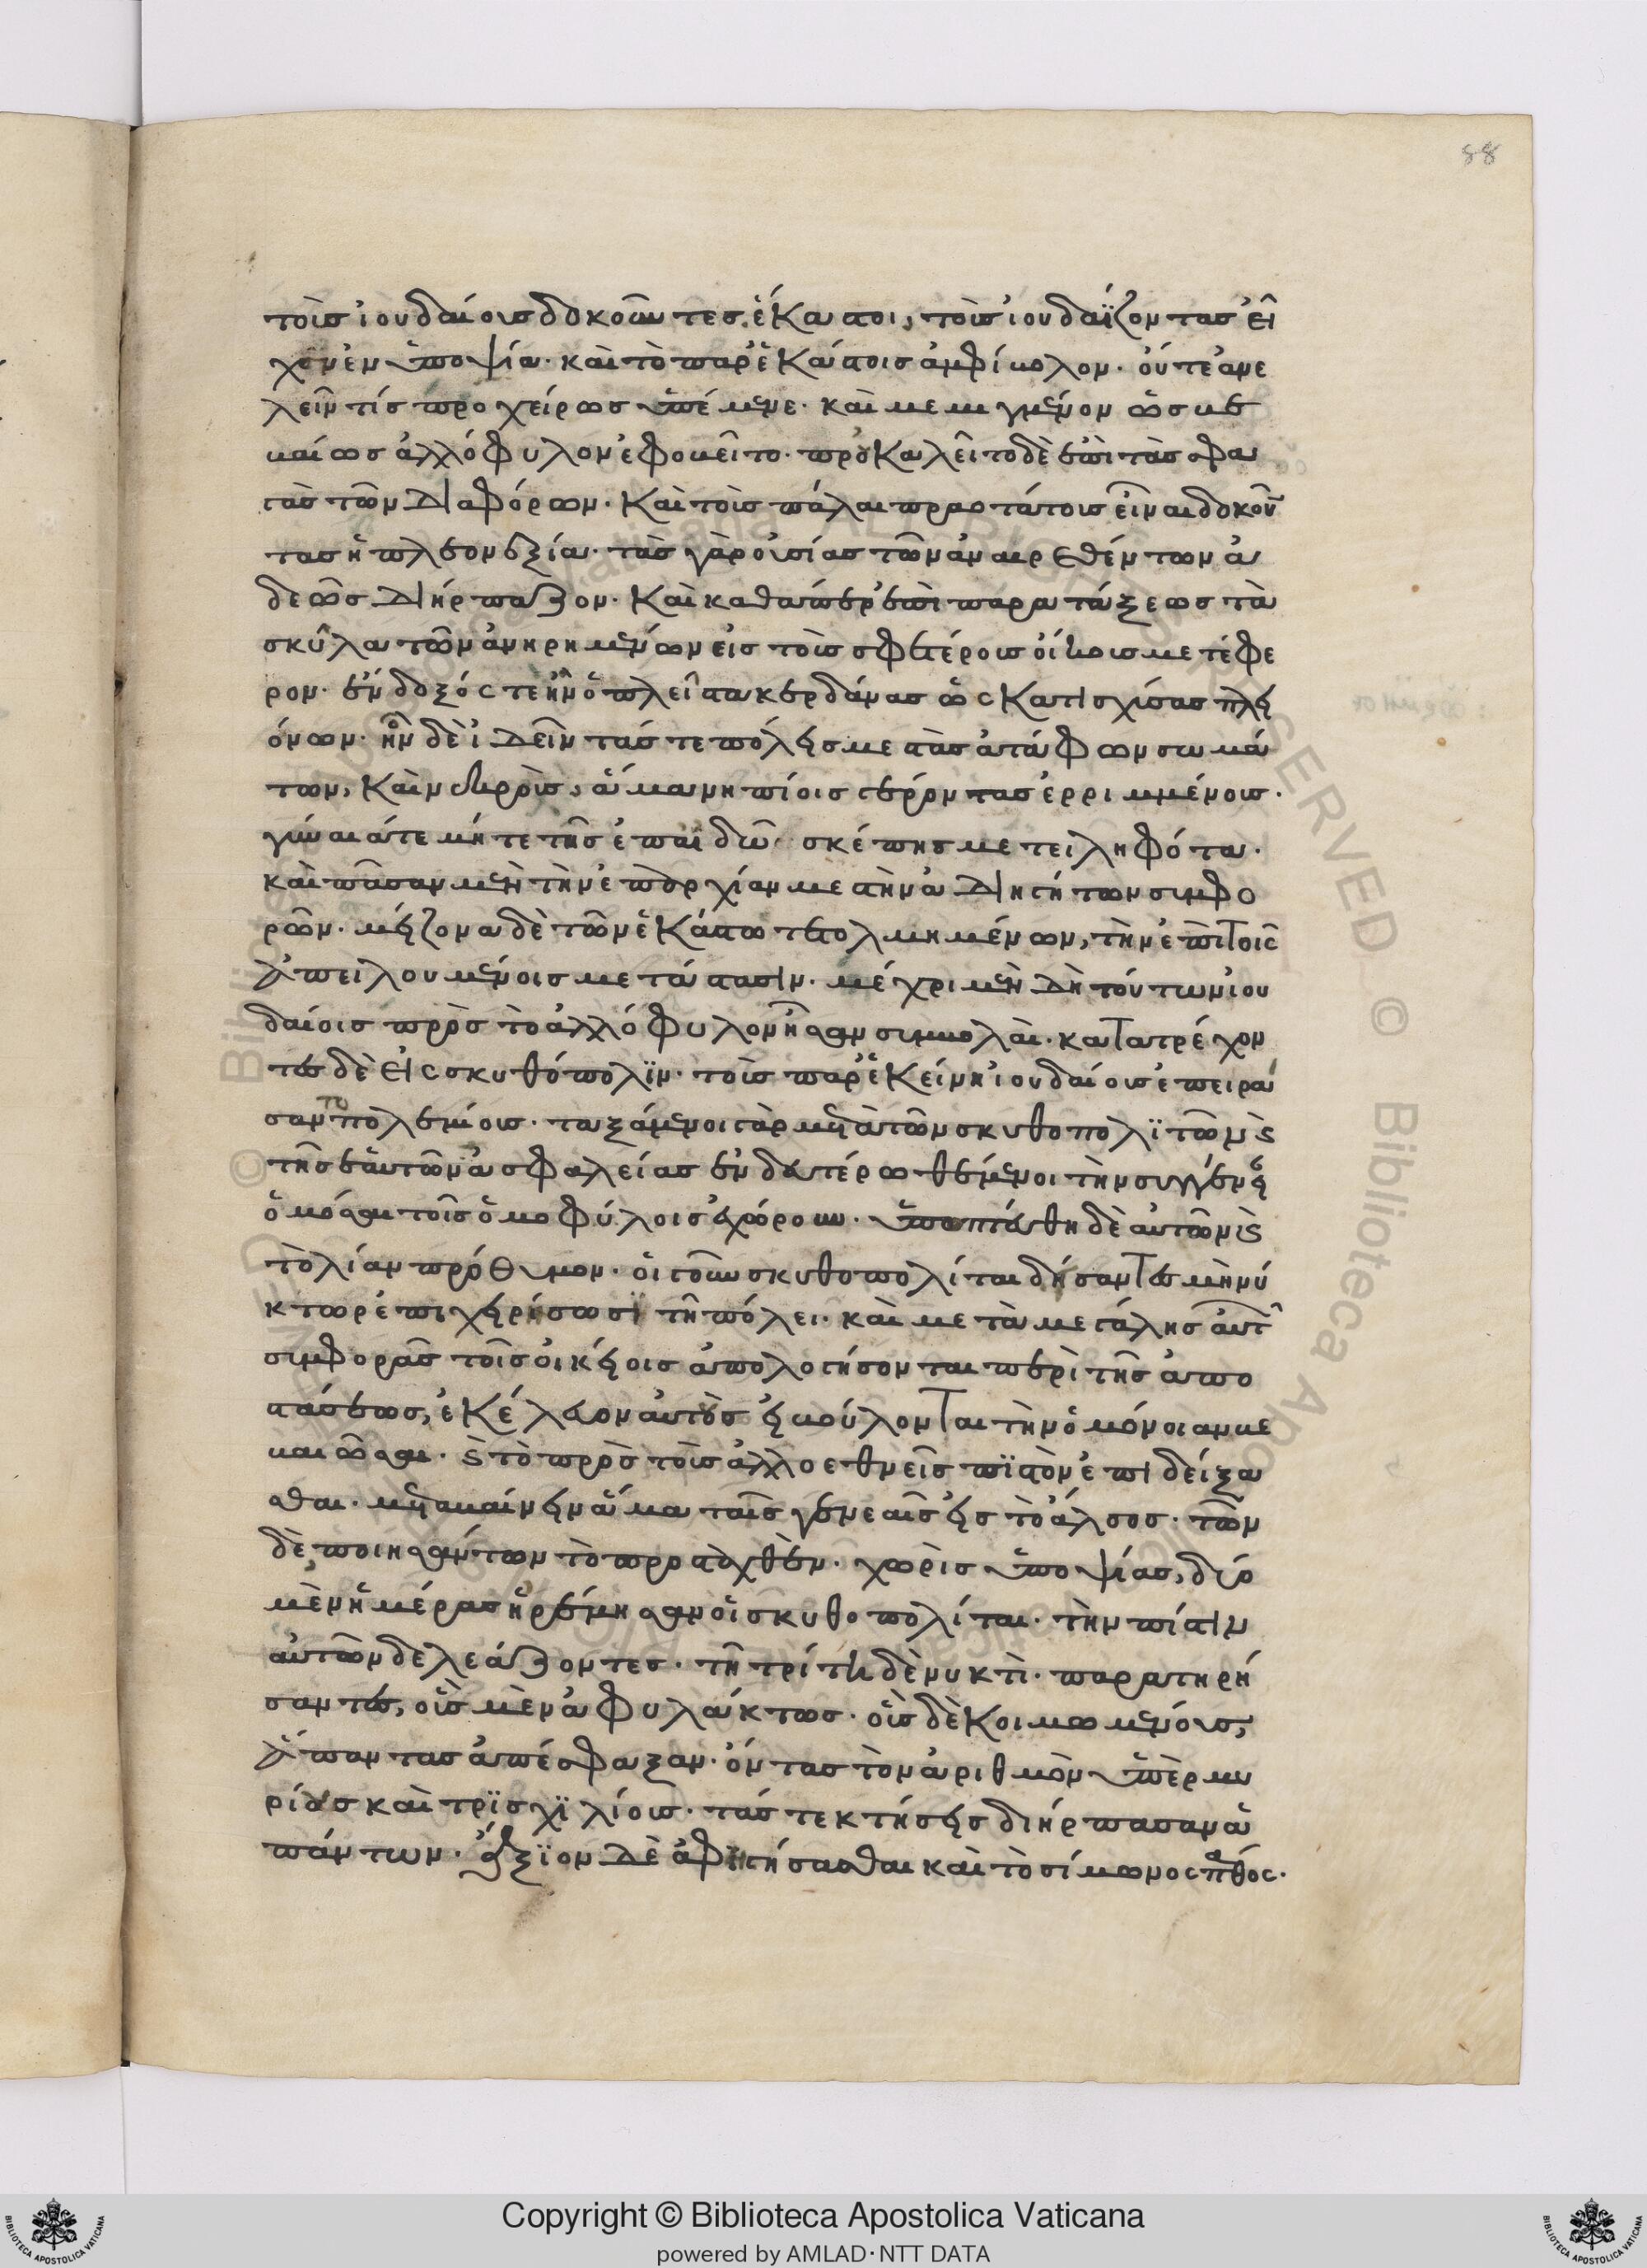 88
τοὺς ἰουδαίους δοκοῦντες. ἕκαστοι, τοὺς ἰουδαΐζοντας εἶ
χον ἐν ὑποψία. καὶ τὸ παρ' ἑκάστοις ἀμφίβολον. οὔτε ἀνε
λεῖν τίς προχείρως ὑπέμενε. καὶ μεμιγμένον ὡς βε
βαίως ἀλλόφυλον ἐφοβεῖτο. προὐκαλεῖτο δὲ ἐπὶ τὰς σφα
γὰς τῶν διαφόρων. καὶ τοὺς πάλαι πραοτάτους εἶναι δοκοῦν
τας ἡ πλεονεξία. τὰς γὰρ οὐσίας τῶν ἀναιρεθέντων ἀ
δεῶς διήρπαζον. καὶ καθάπερ ἐπὶ παρατάξεως τὰ
σκῦλα τῶν ἀνηρημένων εἰς τοὺς σφετέρους οἴκους μετέφε
ρον. ἔνδοξός τε ἦν ὁ πλεῖστα κερδάνας ὡς κατισχύσας πλει
όνων. ἦν δὲ ἰδεῖν τάς τε πόλεις μεστὰς ἀτάφων σωμά
των, καὶ νεκροὺς, ἅμα νηπίοις γέροντας ἐρριμμένους.
γύναιά τε μήτε τῆς ἐπ' αἰδῶ σκέπης μετειληφότα.
καὶ πᾶσαν μὲν τὴν ἐπαρχίαν μεστὴν ἀδιηγήτων συμφο
ρῶν. μείζονα δὲ τῶν ἑκάστοτε τολμημένων, τὴν ἐπὶ τοῖς
ἀπειλουμένοις μετάστασιν. μέχρι μὲν δὴ τούτων ἰου
δαίοις πρὸς τὸ ἀλλόφυλον ἦσαν συμβολαί. κατατρέχον
τες δὲ εἰς σκυθόπολιν. τοὺς παρ' ἐκείνη ἰουδαίους ἐπειρά
σαντο πολεμίους. ταξάμενοι γὰρ μετὰ τῶν σκυθοπολιτῶν καὶ
τῆς ἑαυτῶν ἀσφαλείας ἐν δευτέρω θέμενοι τὴν συγγένειαν
ὁμόσε τοῖς ὁμοφύλοις ἐχώρουν. ὑπωπτεύθη δὲ αὐτῶν καὶ
τὸ λίαν πρόθυμον. οἱ γοῦν σκυθοπολίται δείσαντες μὴ νύ
κτωρ ἐπιχειρήσωσι τῆ πόλει. καὶ μετὰ μεγάλης αὐτῶν
συμφορᾶς τοῖς οἰκείοις ἀπολογήσονται περὶ τῆς ἀπο
στάσεως, ἐκέλευον αὐτοὺς εἰ βούλονται τὴν ὁμόνοιαν βε
βαιῶσαι. καὶ τὸ πρὸς τοὺς ἀλλοεθνεῖς πιστὸν ἐπιδείξα
σθαι. μεταβαίνειν ἅμα ταῖς γενεαῖς εἰς τὸ ἄλσος. τῶν
δὲ ποιησάντων τὸ προσταχθὲν. χωρὶς ὑποψίας, δύο
μὲν ἡμέρας ἠρέμησαν οἱ σκυθοπολίται. τὴν πίστιν
αὐτῶν δελεάζοντες. τῆ τρίτη δὲ νυκτὶ. παρατηρή
σαντες, οὓς μὲν ἀφυλάκτως. οὓς δὲ κοιμωμένους,
ἅπαντας ἀπέσφαξαν. ὄντας τὸν ἀριθμὸν ὑπὲρ μυ
ρίους καὶ τρισχιλίους. τάς τε κτήσεις διήρπασαν ἁ
πάντων. ἄξιον δὲ ἀφηγήσασθαι καὶ τὸ σίμωνος πάθος.
Copyright © Biblioteca Apostolica Vaticana
powered by AMLAD·NTT DATA